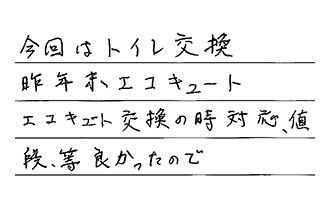 今回はトイレ交換
昨年末、エコキュート
エコキュート交換の時対応、値
段、等良かったので